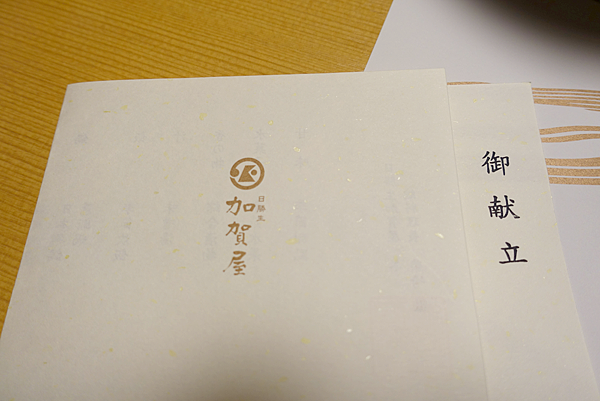 日勝生
加賀屋
御献立